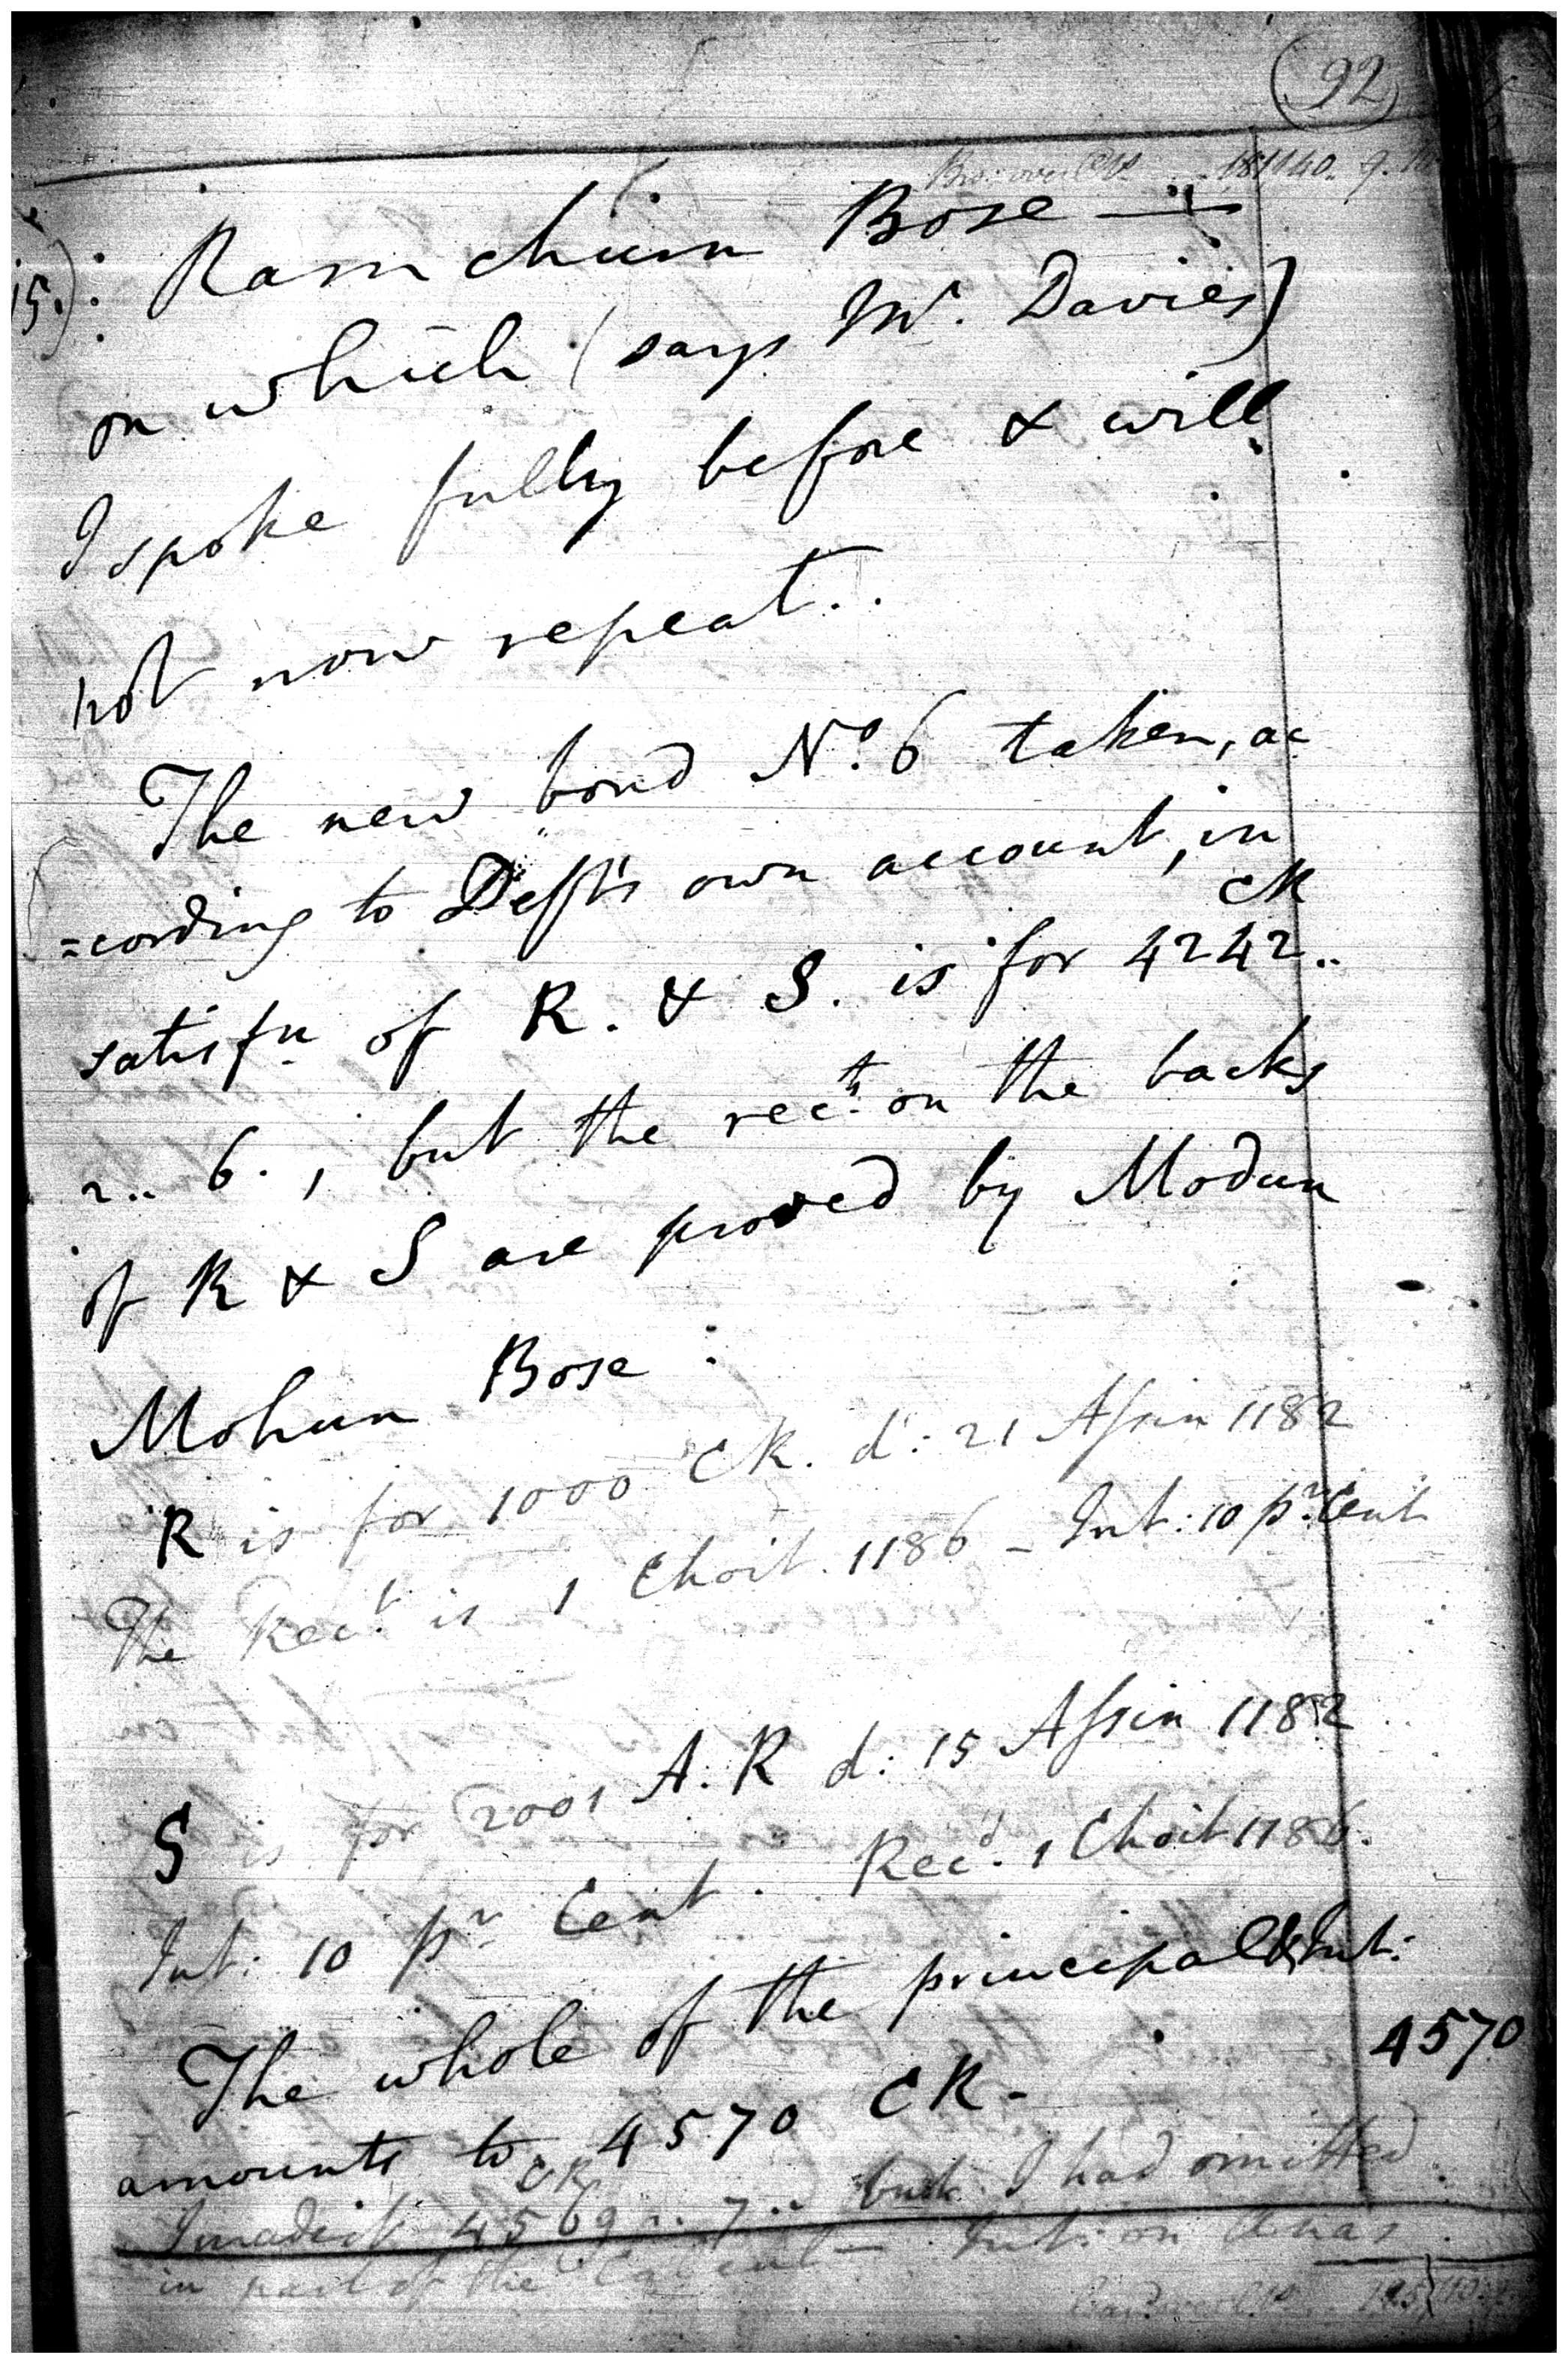 92
Bro: over CRs 181140. 9.
15.): Ramchurn Bose —
on which (says Mr. Davies)
I spoke fully before & will
not now repeat..
The new bond No. 6 taken, ac
=cording to Deft's own account, in
CR
satisfn of R. & S. is for 4242..
2.. 6. , but the rects. on the backs
of R & S are proved by Modun
Mohun Bose :
R is for 1000 CR. d: 21 Assin 1182
The Rect. is 1 Choit. 1186 – Int: 10 pr. Cent
S is for 2001 A. R d: 15 Assin 1182
Int: 10 pr Cent. Recd. 1 Choit 1186.
The whole of the principal & Int:
amounts to 4570 CR – 4570
CR
I made it 4569.. 7.. but I had omitted
in part of the Int: on Anas